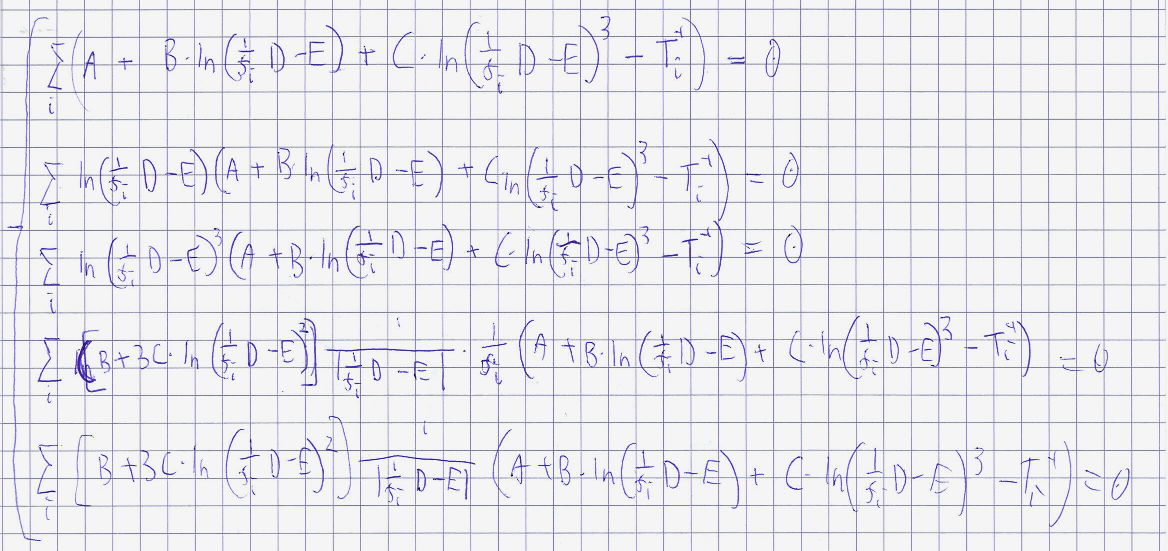 ∑_i (A + B·ln(1/f_i D −E) + C·ln(1/f_i D −E)^3 − T_i^-1) = 0
∑_i ln(1/f_i D−E)(A + B·ln(1/f_i D −E) + C ln(1/f_i D −E)^3 − T_i^-1) = 0
∑_i ln(1/f_i D−E)^3 (A + B·ln(1/f_i D −E) + C·ln(1/f_i D−E)^3 − T_i^-1) = 0
∑_i [B + 3C·ln(1/f_i D −E)^2] 1/|1/f_i D −E| · 1/f_i (A + B·ln(1/f_i D −E) + C·ln(1/f_i D−E)^3 − T_i^-1) = 0
∑_i [B + 3C·ln(1/f_i D−E)^2] 1/|1/f_i D−E| (A + B·ln(1/f_i D−E) + C·ln(1/f_i D−E)^3 − T_i^-1) = 0